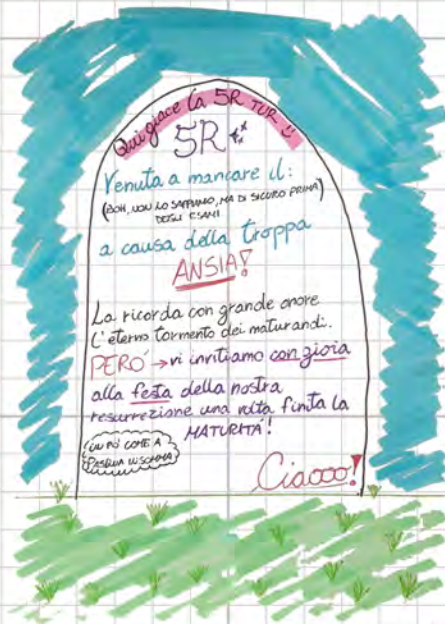 Qui giace la 5R TUR
5R
Venuta a mancare il:
(BOH, NON LO SAPPIAMO, MA DI SICURO PRIMA
DEGLI ESAMI)
a causa della troppa
ANSIA!
La ricorda con grande onore
l'eterno tormento dei maturandi.
PERÒ → vi invitiamo con gioia
alla festa della nostra
resurrezione una volta finita la
MATURITÀ!
(UN PÒ COME A
PASQUA INSOMMA)
Ciaooo!